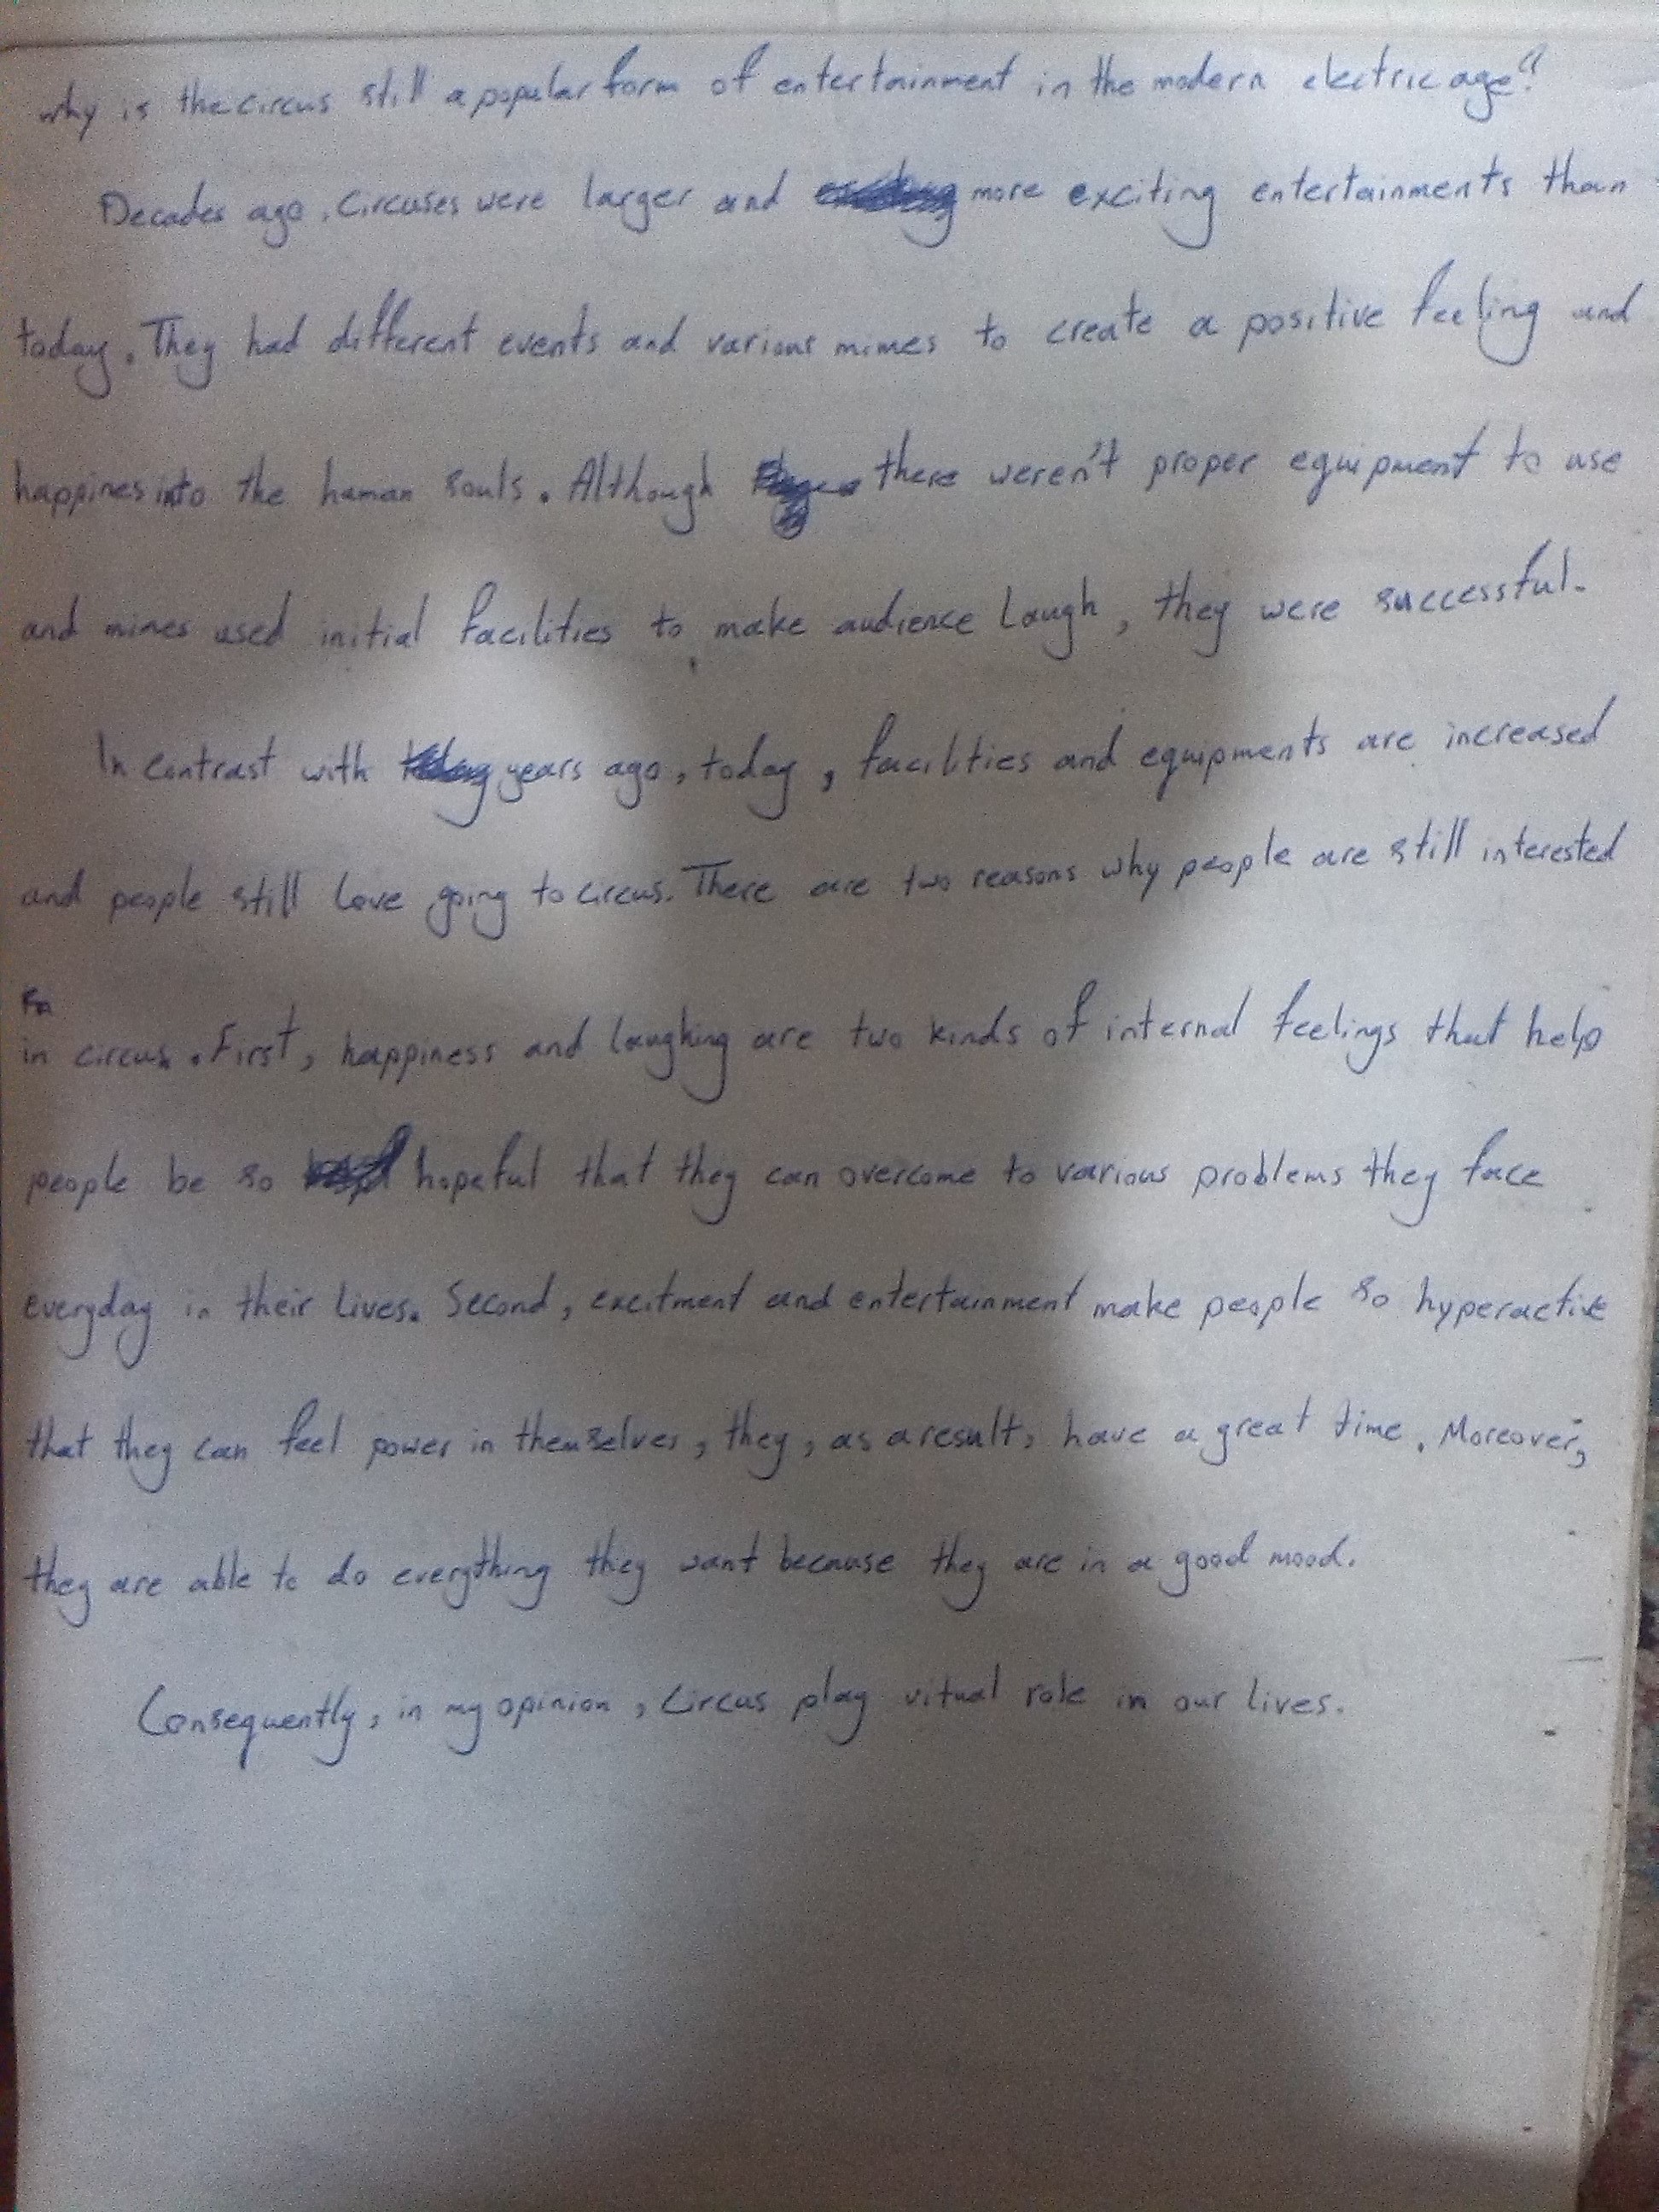 why is the circus still a popular form of entertainment in the modern electric age?
Decades ago, circuses were larger and more exciting entertainments than
today. They had different events and various mimes to create a positive feeling and
happines into the human souls. Although there weren't proper equipment to use
and mimes used initial facilities to make audience laugh, they were successful.
In contrast with years ago, today, facilities and equipments are increased
and people still love going to circus. There are two reasons why people are still interested
in circus. First, happiness and laughing are two kinds of internal feelings that help
people be so hopeful that they can overcome to various problems they face
everyday in their lives. Second, excitment and entertainment make people so hyperactive
that they can feel power in themselves, they, as a result, have a great time. Moreover,
they are able to do everything they want because they are in a good mood.
Consequently, in my opinion, circus play vitual role in our lives.